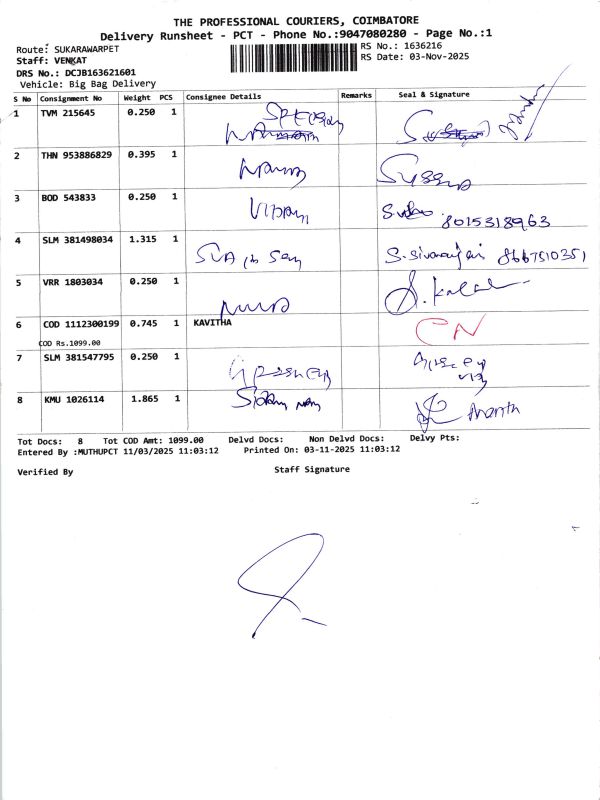 THE PROFESSIONAL COURIERS, COIMBATORE
Delivery Runsheet - PCT - Phone No.:9047080280 - Page No.:1
Route: SUKARAWARPET
RS No.: 1636216
Staff: VENKAT
RS Date: 03-Nov-2025
DRS No.: DCJB163621601
Vehicle: Big Bag Delivery
S No Consignment No Weight PCS Consignee Details Remarks Seal & Signature
1 TVM 215645 0.250 1
2 THN 953886829 0.395 1
3 BOD 543833 0.250 1 8015318963
4 SLM 381498034 1.315 1 S. Sivaranjani 8667510351
5 VRR 1803034 0.250 1
6 COD 1112300199 0.745 1 KAVITHA CN
COD Rs.1099.00
7 SLM 381547795 0.250 1
8 KMU 1026114 1.865 1 Ananth
Tot Docs: 8 Tot COD Amt: 1099.00 Delvd Docs: Non Delvd Docs: Delvy Pts:
Entered By :MUTHUPCT 11/03/2025 11:03:12 Printed On: 03-11-2025 11:03:12
Verified By Staff Signature